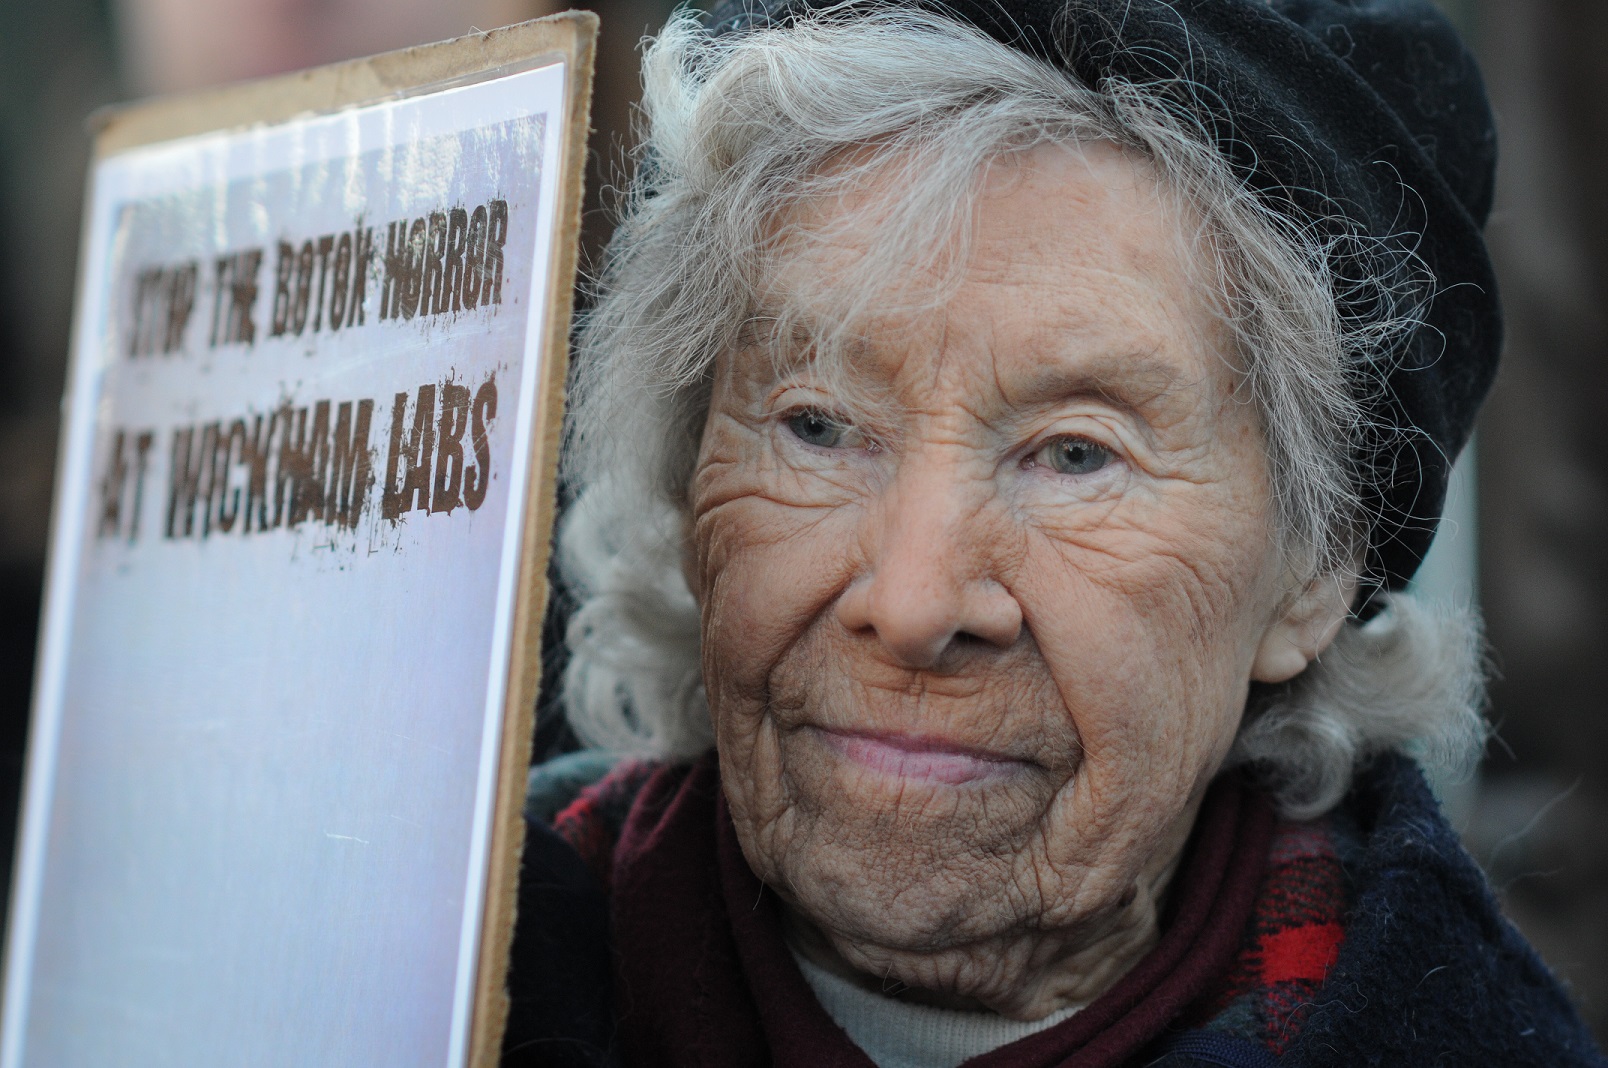 STOP THE BOTOX HORROR
AT WICKHAM LABS